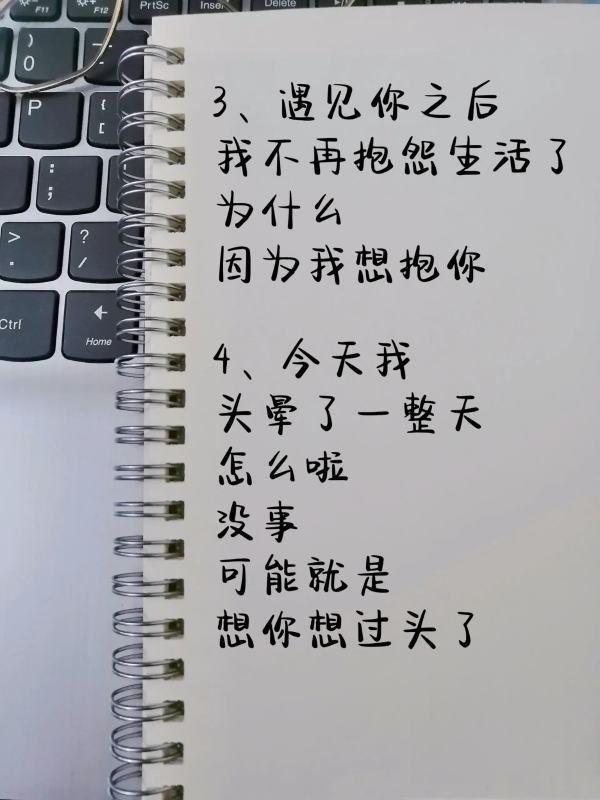 F11
F12
PrtSc
Insert
Delete
)
0
P
{
[
:
;
>
.
?
/
Ctrl
Home
3、遇见你之后
我不再抱怨生活了
为什么
因为我想抱你
4、今天我
头晕了一整天
怎么啦
没事
可能就是
想你想过头了